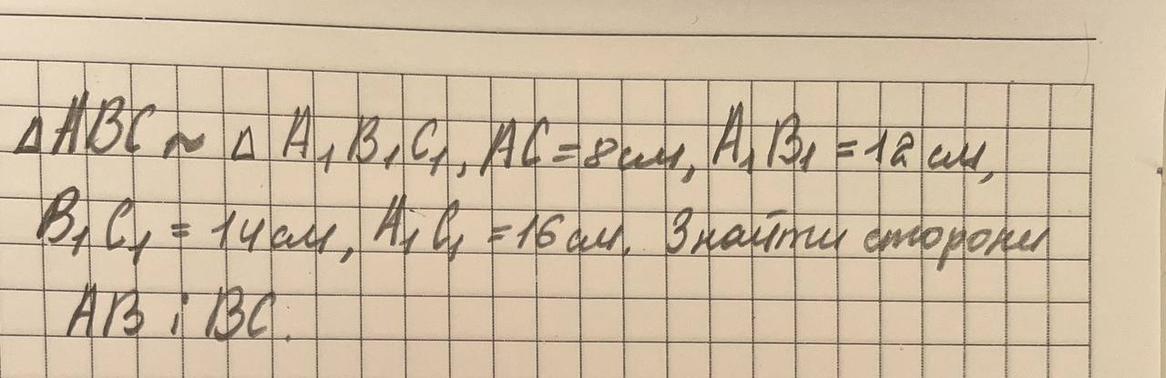 ∆ ABC ~ ∆ A₁B₁C₁, AC = 8 см, A₁B₁ = 12 см,
B₁C₁ = 14 см, A₁C₁ = 16 см. Знайти сторони
AB і BC.